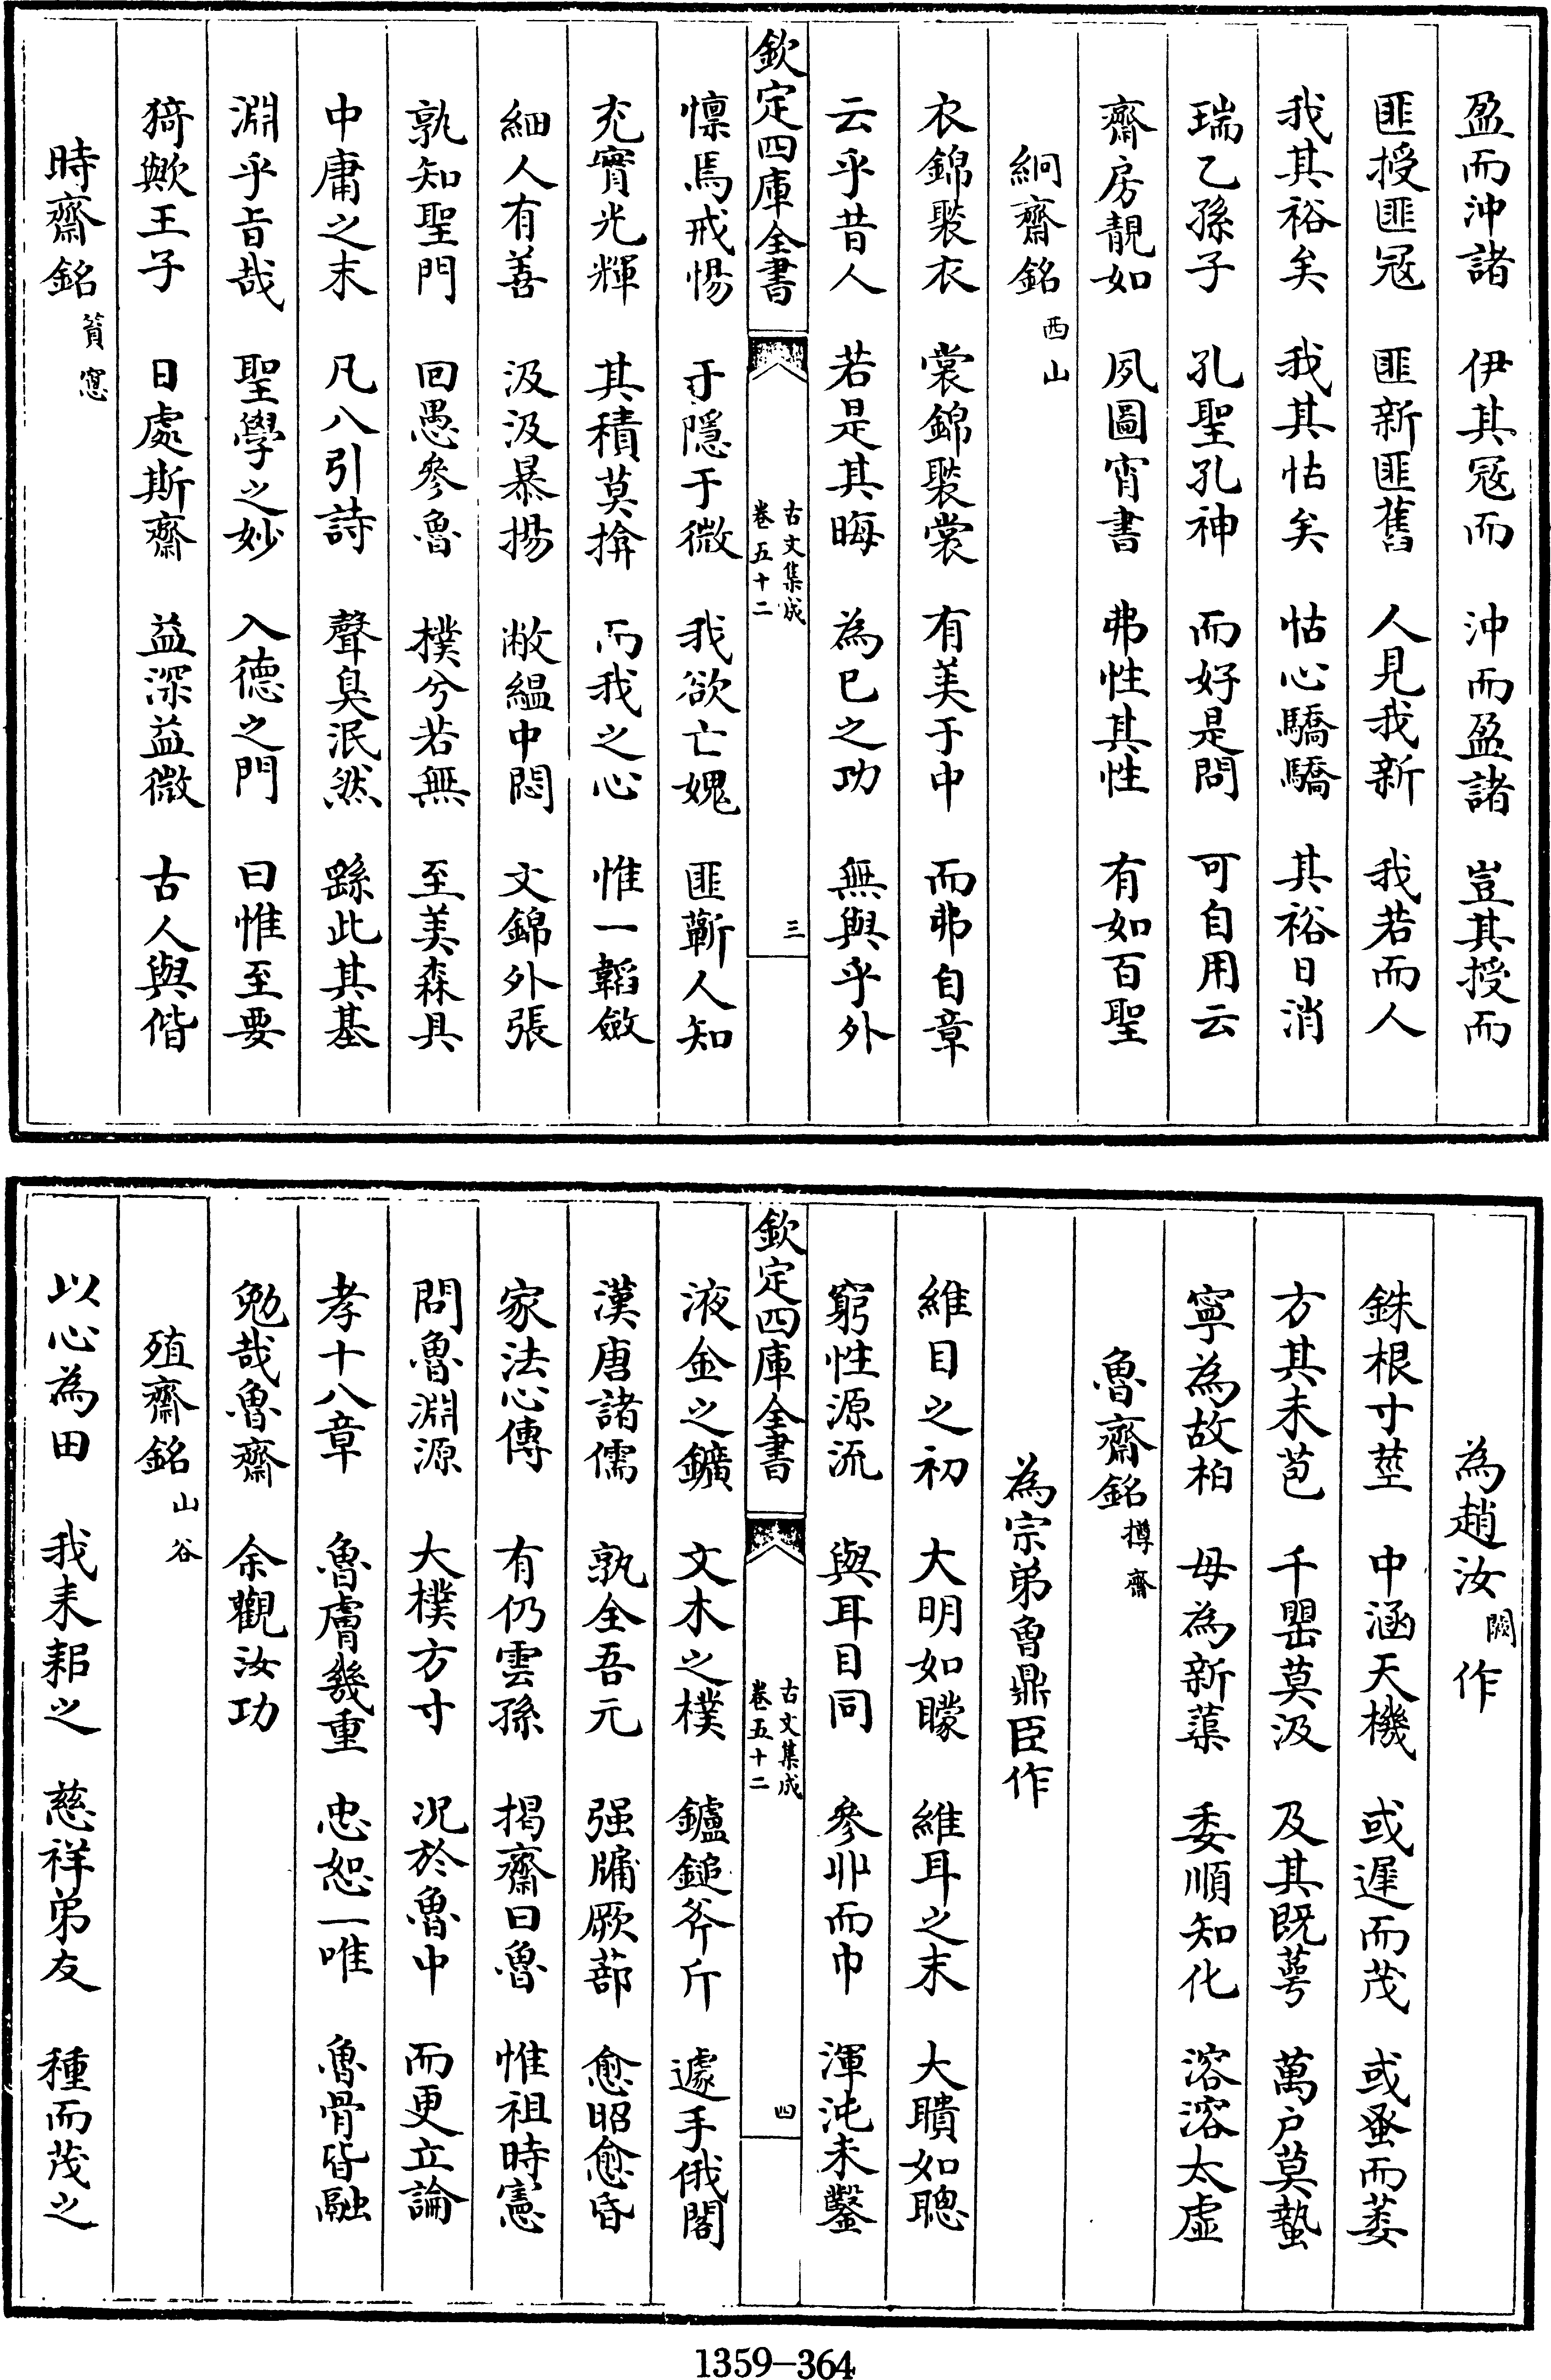 盈而沖諸　伊其冦而　沖而盈諸　豈其授而
匪授匪冦　匪新匪舊　人見我新　我若而人
我其裕矣　我其怙矣　怙心驕驕　其裕日消
瑞乙孫子　孔聖孔神　而好是問　可自用云
齋房靚如　夙圖宵書　弗性其性　有如百聖
絅齋銘　西山
衣錦褧衣　裳錦褧裳　有美于中　而弗自章
云乎昔人　若是其晦　為己之功　無與乎外
欽定四庫全書　古文集成　卷五十二　三
懍焉戒惕　于隱于微　我欲亡媿　匪蘄人知
充實光輝　其積莫揜　而我之心　惟一韜斂
細人有善　汲汲暴揚　敝緼中悶　文錦外張
孰知聖門　回愚參魯　樸兮若無　至美森具
中庸之末　凡八引詩　聲臭泯然　繇此其基
淵乎旨哉　聖學之妙　入德之門　曰惟至要
猗歟王子　日處斯齋　益深益微　古人與偕
時齋銘　篔窓
為趙汝闕作
銖根寸莖　中涵天機　或遲而茂　或蚤而萎
方其未苞　千罌莫汲　及其既蕚　萬户莫蟄
寧為故柏　毋為新蕖　委順知化　溶溶太虛
魯齋銘　樽齋
為宗弟魯鼎臣作
維目之初　大明如矇　維耳之末　大聵如聰
窮性源流　與耳目同　參丱而巾　渾沌未鑿
欽定四庫全書　古文集成　卷五十二　四
液金之鑛　文木之樸　鑪鎚斧斤　遽手俄閣
漢唐諸儒　孰全吾元　强牖厥蔀　愈昭愈昏
家法心傳　有仍雲孫　揭齋曰魯　惟祖時憲
問魯淵源　大樸方寸　况於魯中　而更立論
孝十八章　魯膚幾重　忠恕一唯　魯骨皆融
勉哉魯齋　余觀汝功
殖齋銘　山谷
以心為田　我耒耜之　慈祥弟友　種而茂之
1359-364